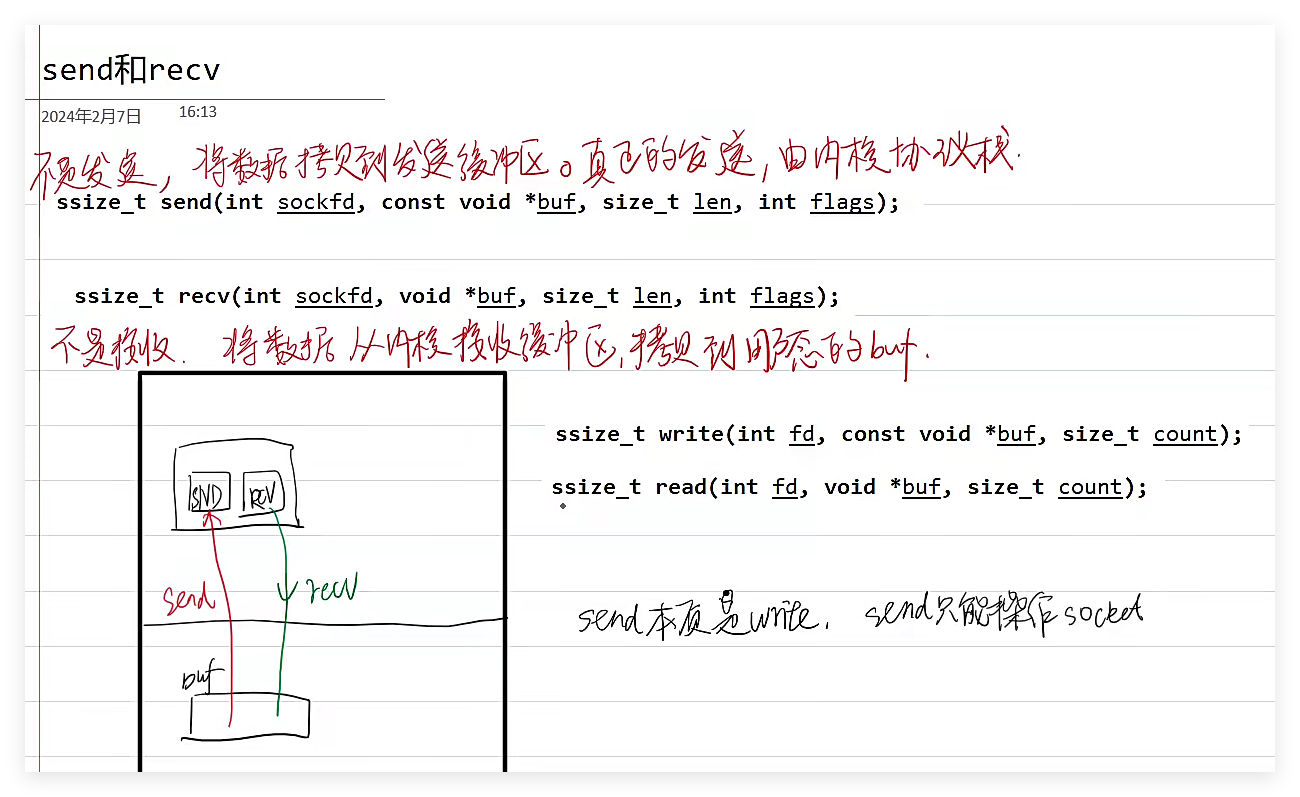 send和recv
2024年2月7日 16:13
不是发送，将数据拷贝到发送缓冲区。真正的发送，由内核协议栈.
ssize_t send(int sockfd, const void *buf, size_t len, int flags);
ssize_t recv(int sockfd, void *buf, size_t len, int flags);
不是接收. 将数据从内核接收缓冲区，拷贝到用户态的buf.
ssize_t write(int fd, const void *buf, size_t count);
ssize_t read(int fd, void *buf, size_t count);
SND RCV
send recv
send本质是write. send只能操作socket
buf